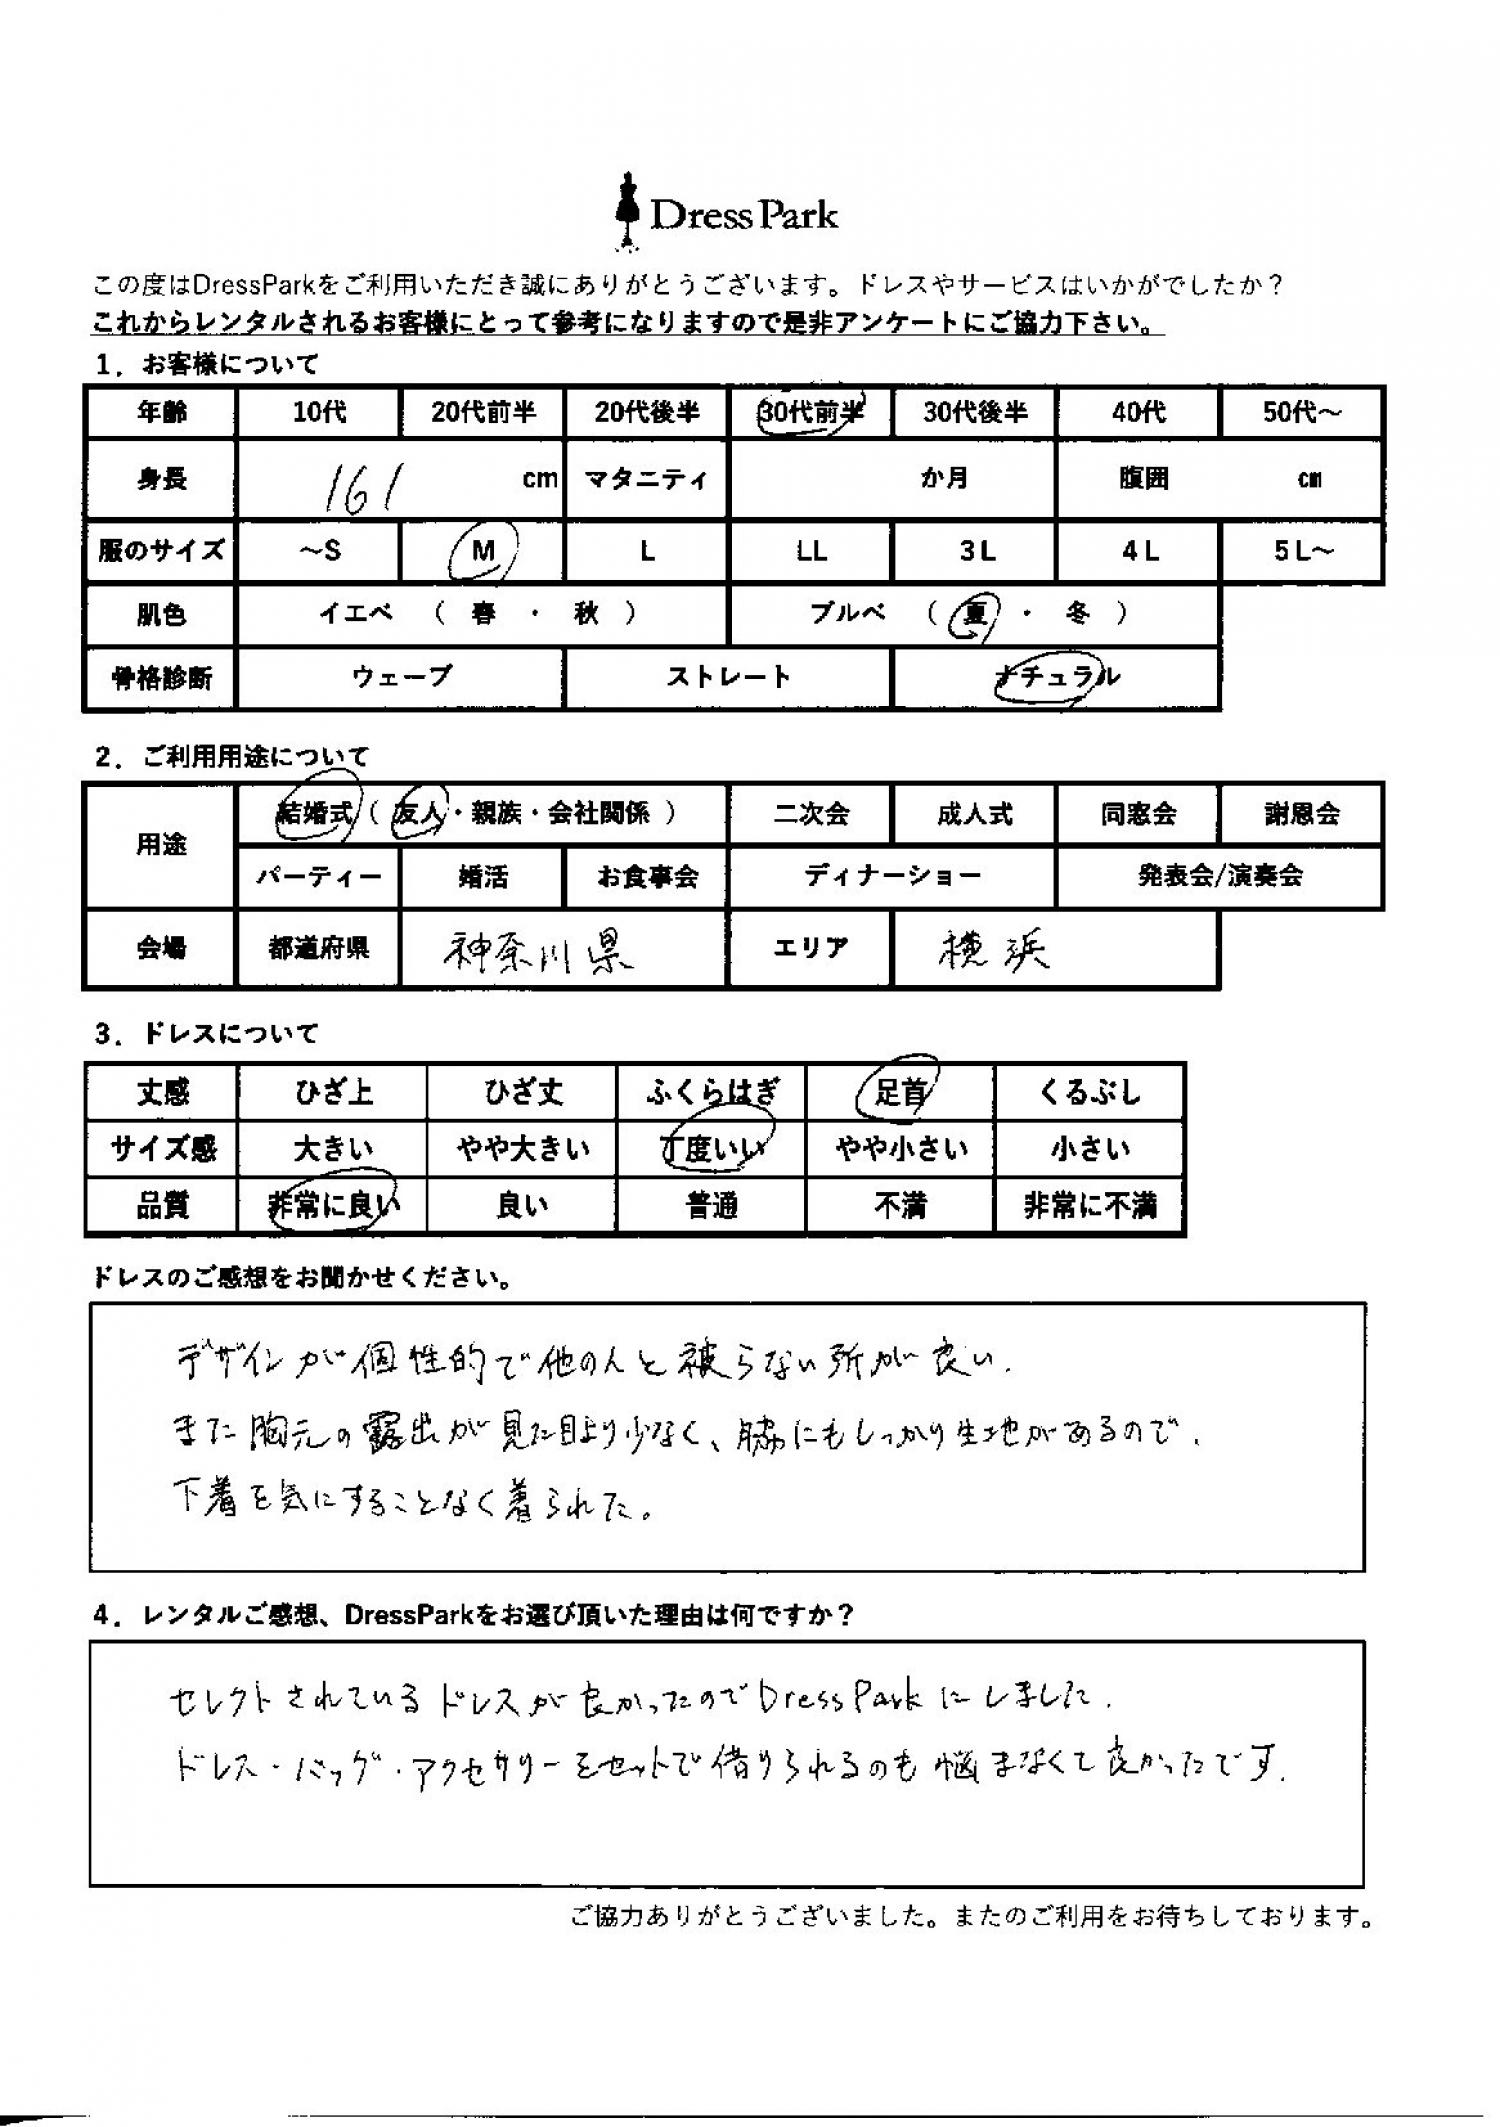 Dress Park
この度はDressParkをご利用いただき誠にありがとうございます。ドレスやサービスはいかがでしたか？
これからレンタルされるお客様にとって参考になりますので是非アンケートにご協力下さい。
1．お客様について
年齢 10代 20代前半 20代後半 30代前半 30代後半 40代 50代～
身長 161 cm マタニティ か月 腹囲 cm
服のサイズ ～S M L LL 3L 4L 5L～
肌色 イエベ （ 春 ・ 秋 ） ブルベ （ 夏 ・ 冬 ）
骨格診断 ウェーブ ストレート ナチュラル
2．ご利用用途について
用途 結婚式（ 友人・親族・会社関係 ） 二次会 成人式 同窓会 謝恩会
パーティー 婚活 お食事会 ディナーショー 発表会/演奏会
会場 都道府県 神奈川県 エリア 横浜
3．ドレスについて
丈感 ひざ上 ひざ丈 ふくらはぎ 足首 くるぶし
サイズ感 大きい やや大きい 丁度いい やや小さい 小さい
品質 非常に良い 良い 普通 不満 非常に不満
ドレスのご感想をお聞かせください。
デザインが個性的で他の人と被らない所が良い.
また胸元の露出が見た目より少なく、脇にもしっかり生地があるので、
下着を気にすることなく着られた。
4．レンタルご感想、DressParkをお選び頂いた理由は何ですか？
セレクトされているドレスが良かったのでDressParkにしました.
ドレス・バッグ・アクセサリーをセットで借りられるのも悩まなくて良かったです.
ご協力ありがとうございました。またのご利用をお待ちしております。